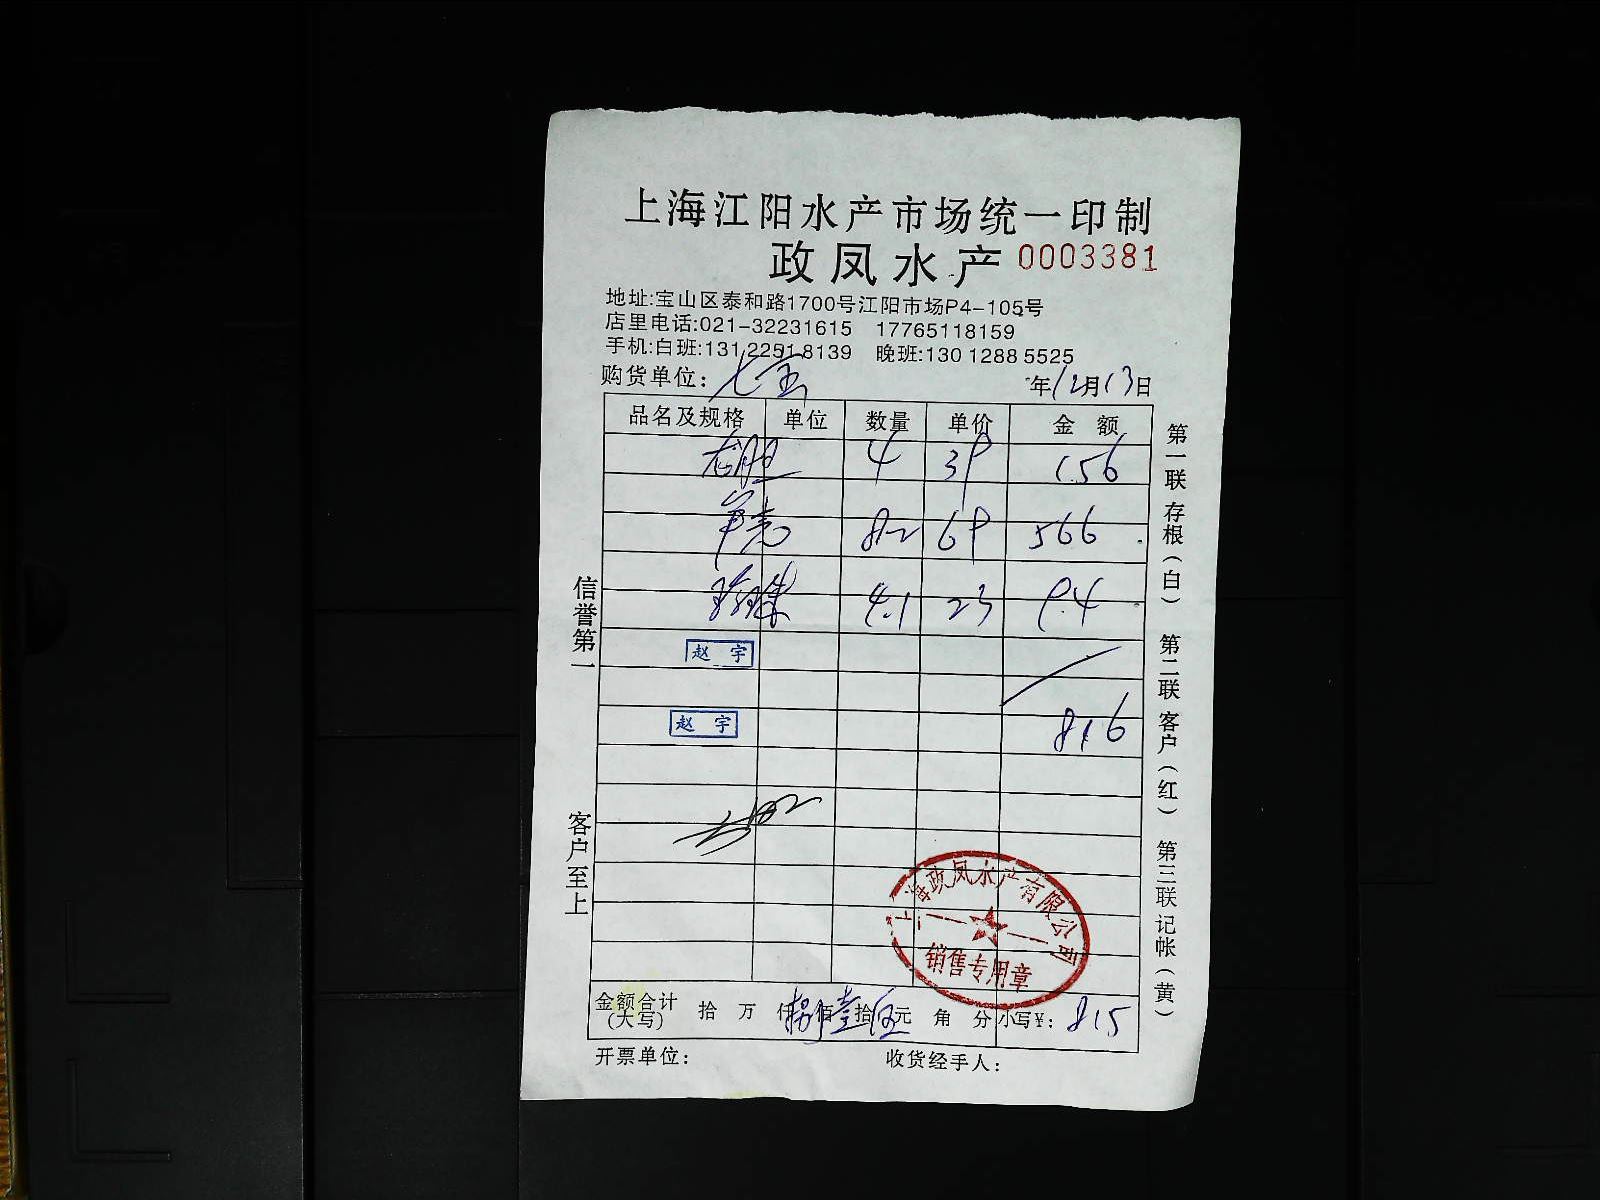 上海江阳水产市场统一印制
政凤水产 0003381
地址:宝山区泰和路1700号江阳市场P4-105号
店里电话:021-32231615 17765118159
手机:白班:131 2251 8139 晚班:130 1288 5525
购货单位: 七宝 年12月13日
品名及规格 单位 数量 单价 金额
龙胆 4 39 156
笋壳 8.2 69 566
珍珠 4.1 23 94
赵宇
赵宇
816
上海政凤水产有限公司
销售专用章
金额合计(大写) 拾 万 仟 捌佰壹拾伍元 角 分 小写¥: 815
开票单位: 收货经手人:
信誉第一
客户至上
第一联存根(白) 第二联客户(红) 第三联记帐(黄)